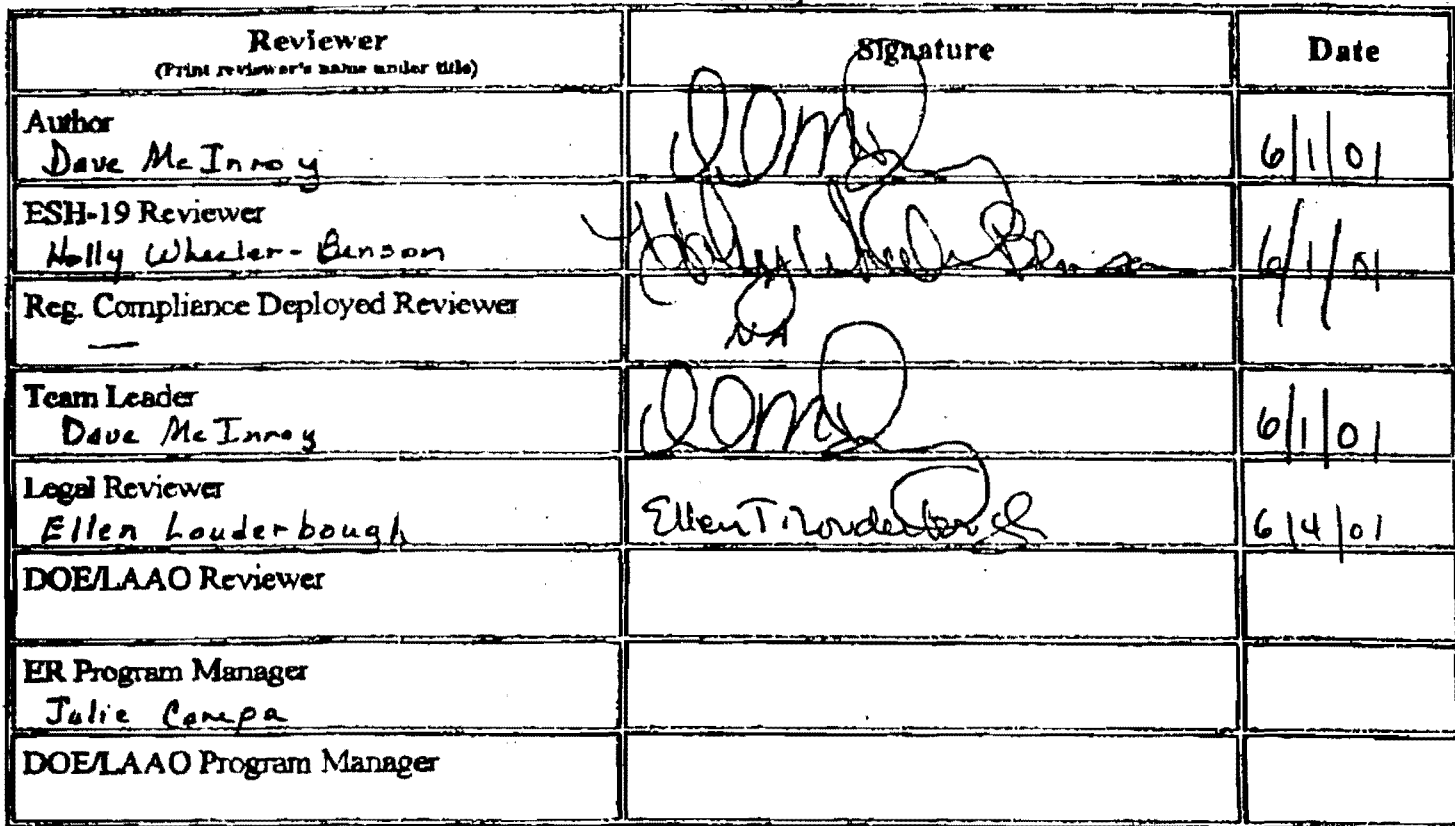 Reviewer Signature Date
(Print reviewer's name under title)
Author
Dave McInroy 6/1/01
ESH-19 Reviewer
Holly Wheeler-Benson Holly Wheeler Benson 6/1/01
Reg. Compliance Deployed Reviewer
— NA
Team Leader
Dave McInroy 6/1/01
Legal Reviewer
Ellen Louderbough Ellen T. Louderbough 6/4/01
DOE/LAAO Reviewer
ER Program Manager
Julie Canepa
DOE/LAAO Program Manager